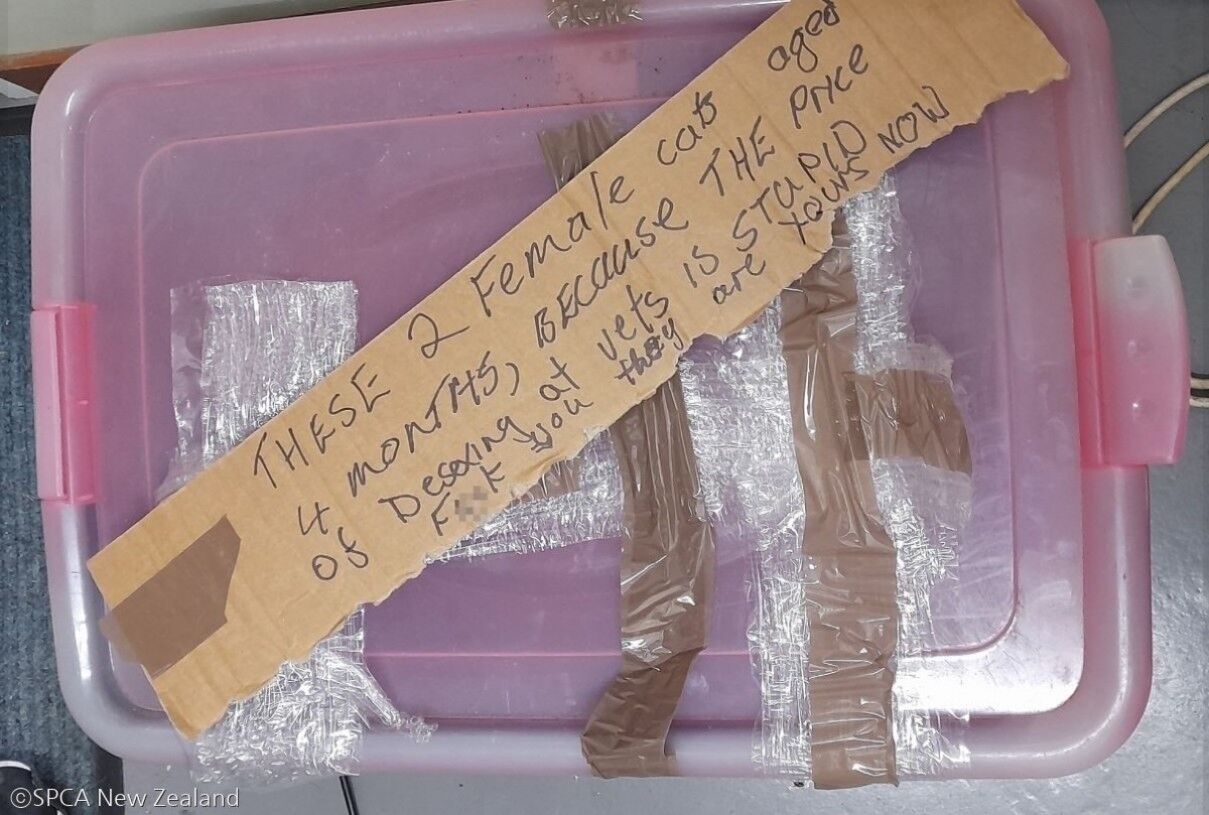 THESE 2 Female cats aged
4 MONTHS, BECAUSE THE PRICE
OF Desexing at vets IS STUPID
F k you they are YOURS NOW
©SPCA New Zealand